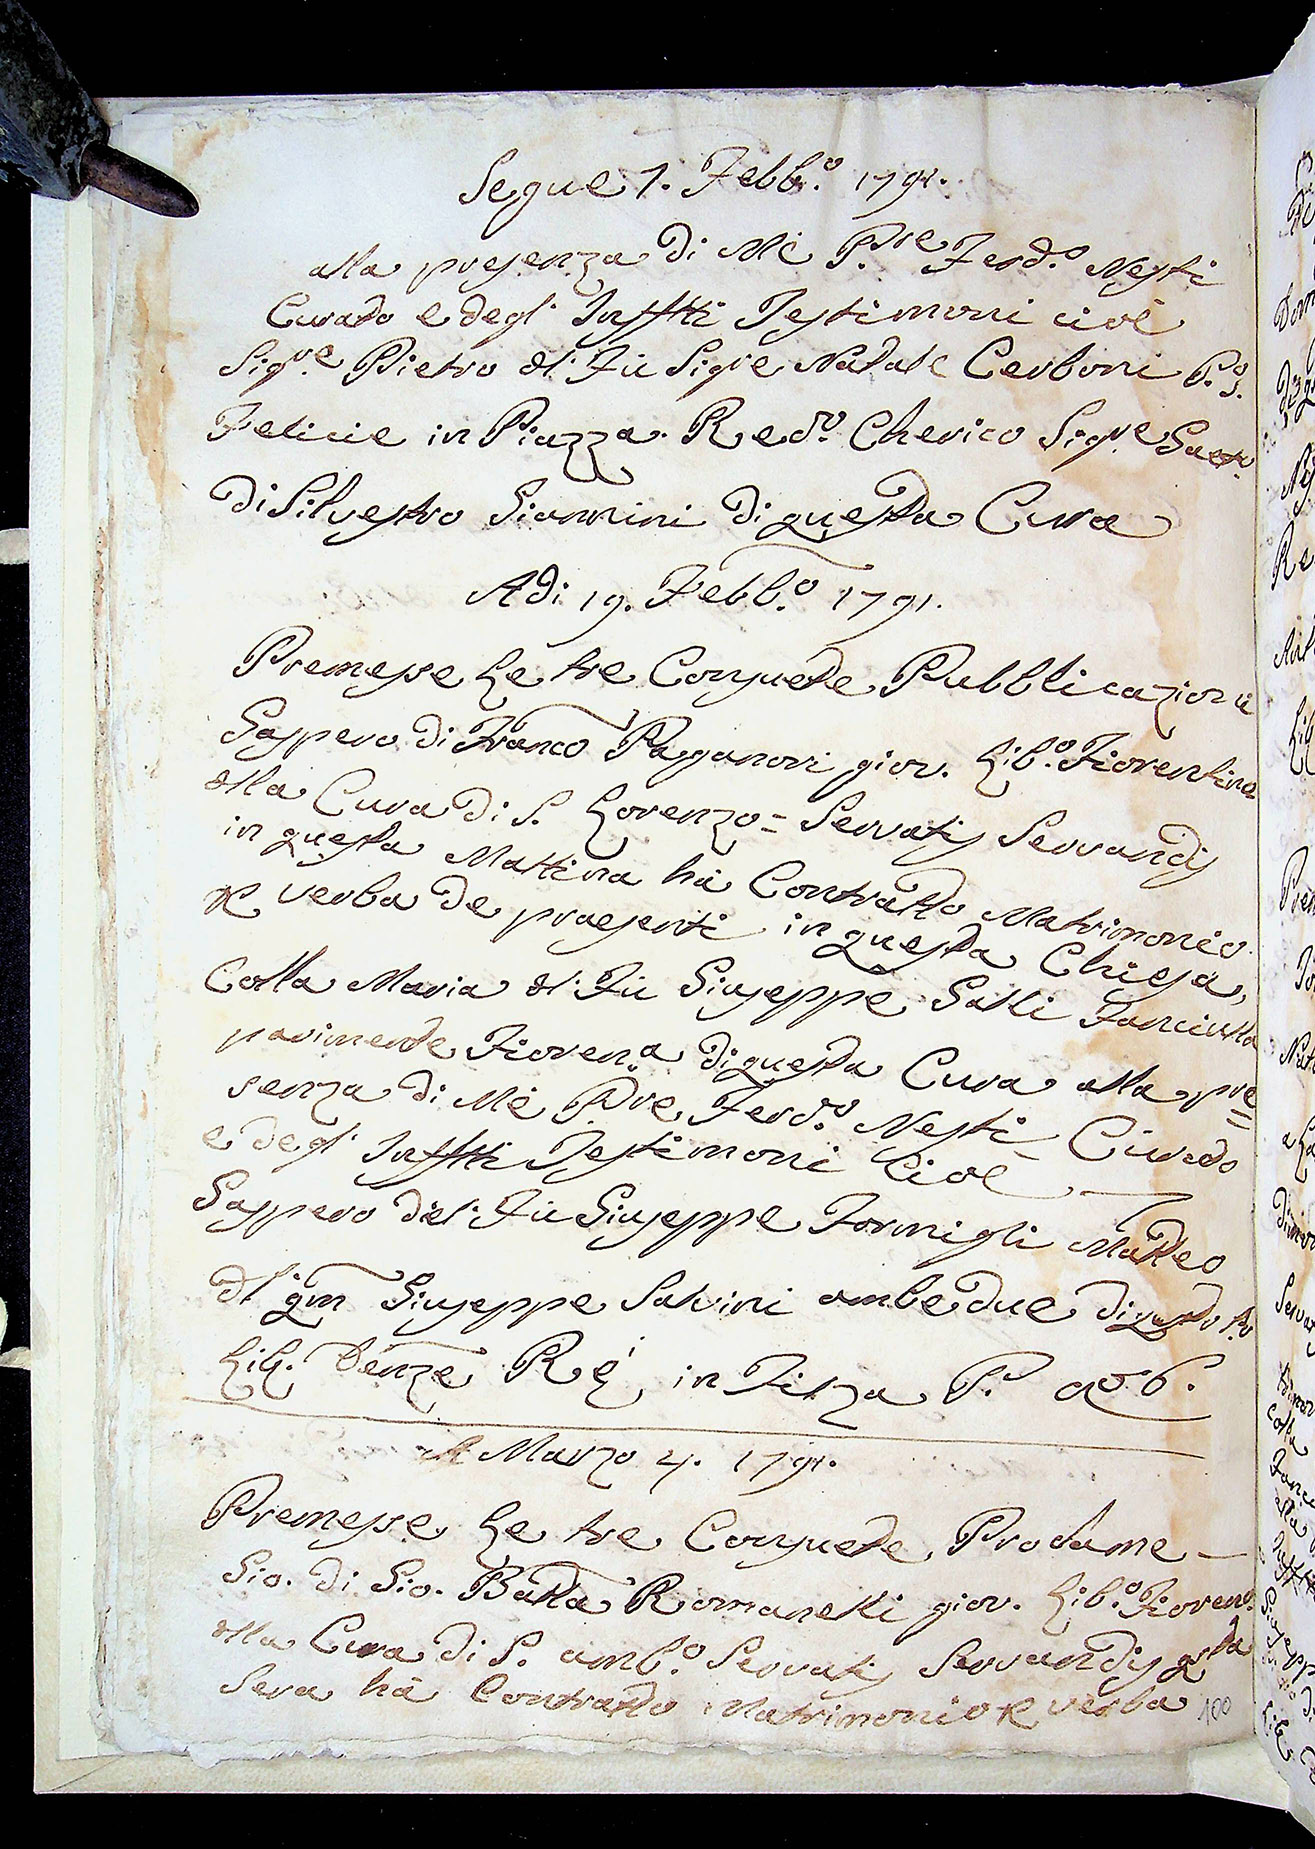 Segue 1. Febb.º 1791.
alla presenza di Me P.re Ferd.º Nesti
Curato e degl' Inftti Testimoni cioè
Sig.re Pietro dl: Fù Sig.re Natale Cerboni P. S.
Felicie in Piazza. Red.º Cherico Sig.re Gaet.º
di Silvestro Giannini di questa Cura
Adi 19. Febb.º 1791.
Premesse Le tre Consuete Pubblicazioni
Gaspero di Franco Paganori giov. Lib.º Fiorentino
dlla Cura di S. Lorenzo = Servatis Servandis
in questa Mattina hà Contratto Matrimonio
per verba de praesenti in questa Chiesa,
Colla Maria dl: Fù Giuseppe Galli Fanciulla
parimente Fioren.a di questa Cura alla pre=
senza di Me P.re Ferd.º Nesti Curato
e degl' Inftti Testimoni Cioè
Gaspero del: Fù Giuseppe Formigli Matteo
dl qm Giuseppe Salvini ambedue di questo Po
Lib. Denze Re in Filza P. aº 6.
A Marzo 4. 1791.
Premesse Le tre Consuete Proclame –
Gio. di Gio. Batta Romanelli giov. Lib.º Fioren.º
dlla Cura di S. amb.º Servatis Servandis qsta
Sera hà Contratto Matrimonio per verba
100